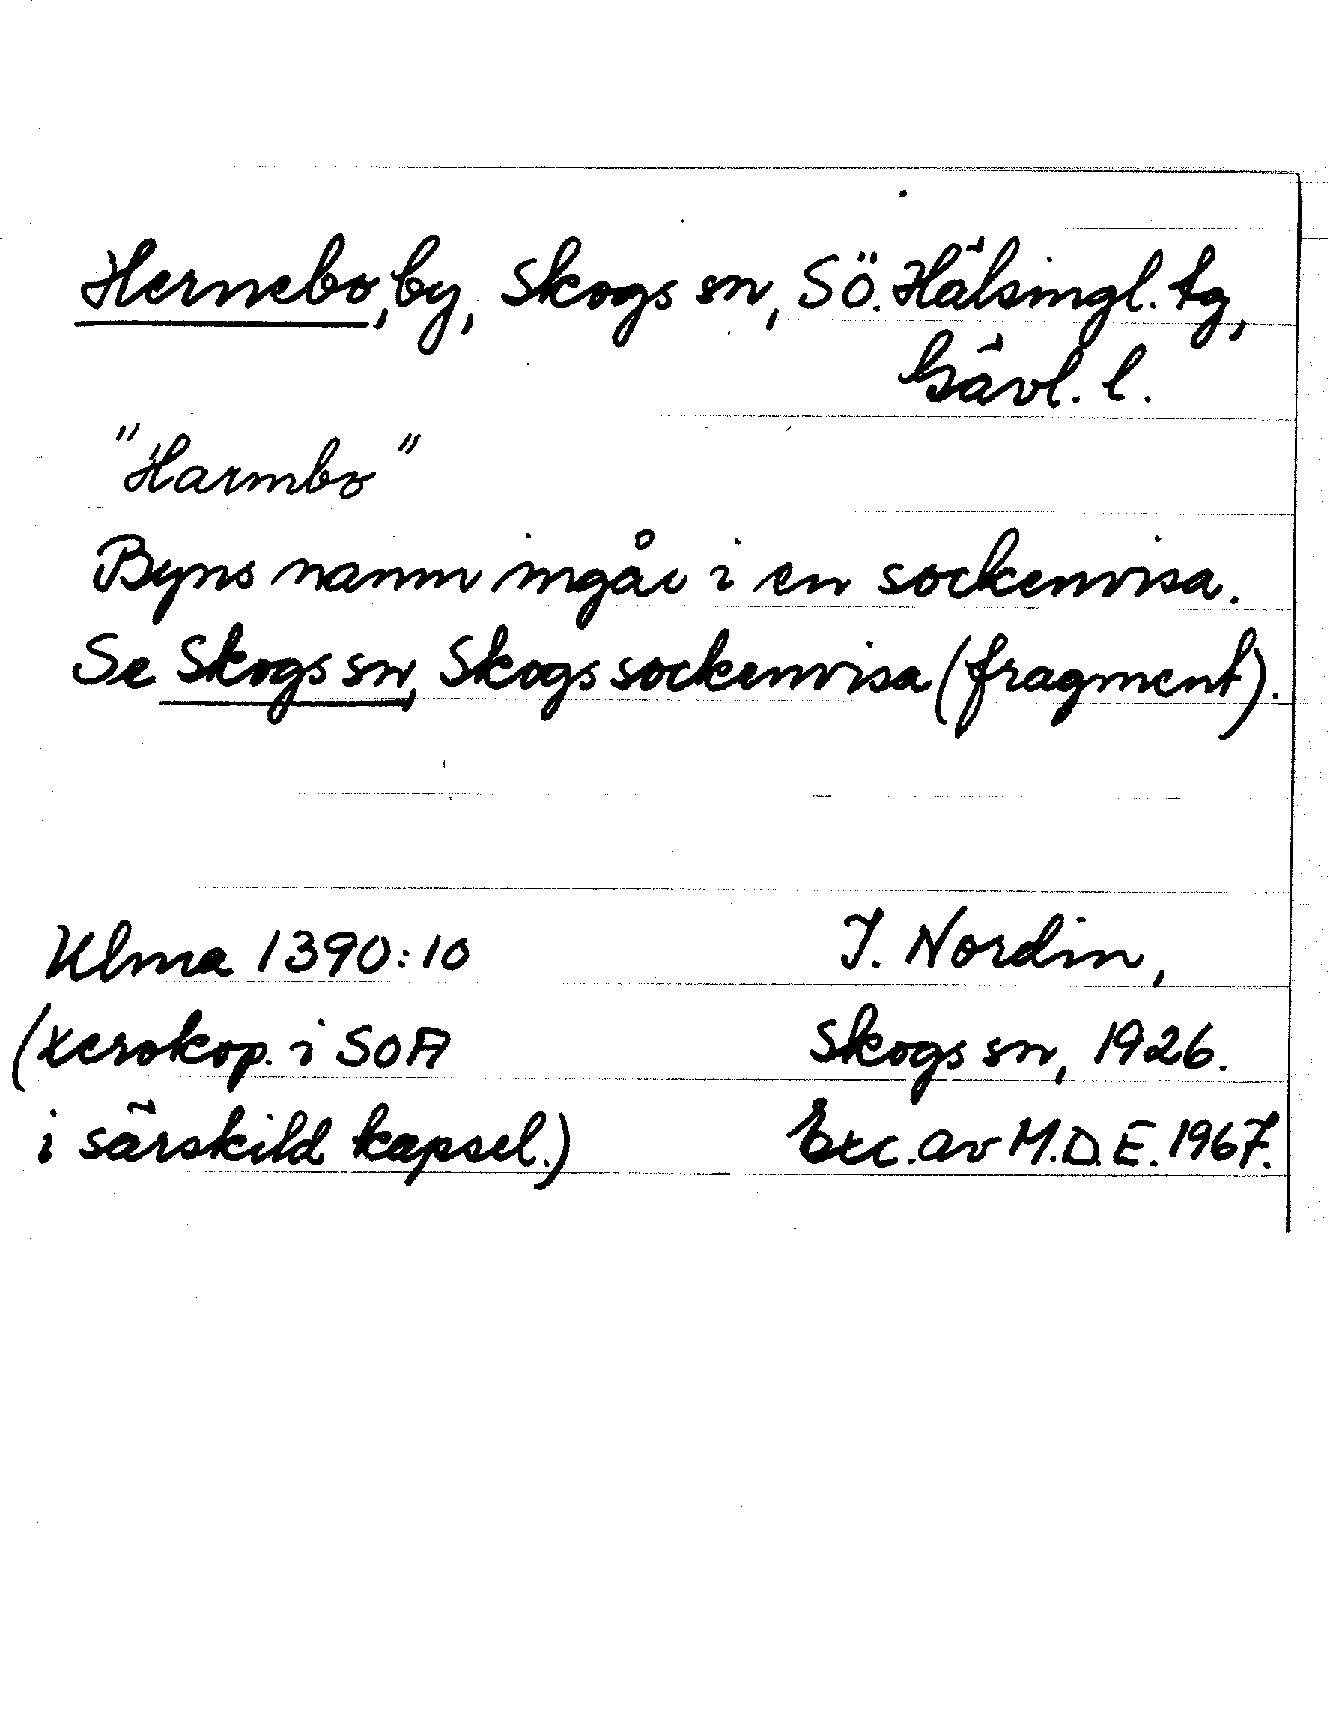 Hernebo, by, Skogs sn, Sö. Hälsingl. tg,
Gävl. l.
"Harmbo"
Byns namn ingår i en sockenvisa.
Se Skogs sn, Skogs sockenvisa (fragment).
Ulma 1390:10
(xerokop. i SOA
i särskild kapsel.)
J. Nordin,
Skogs sn, 1926.
Exc. av M.D.E. 1967.